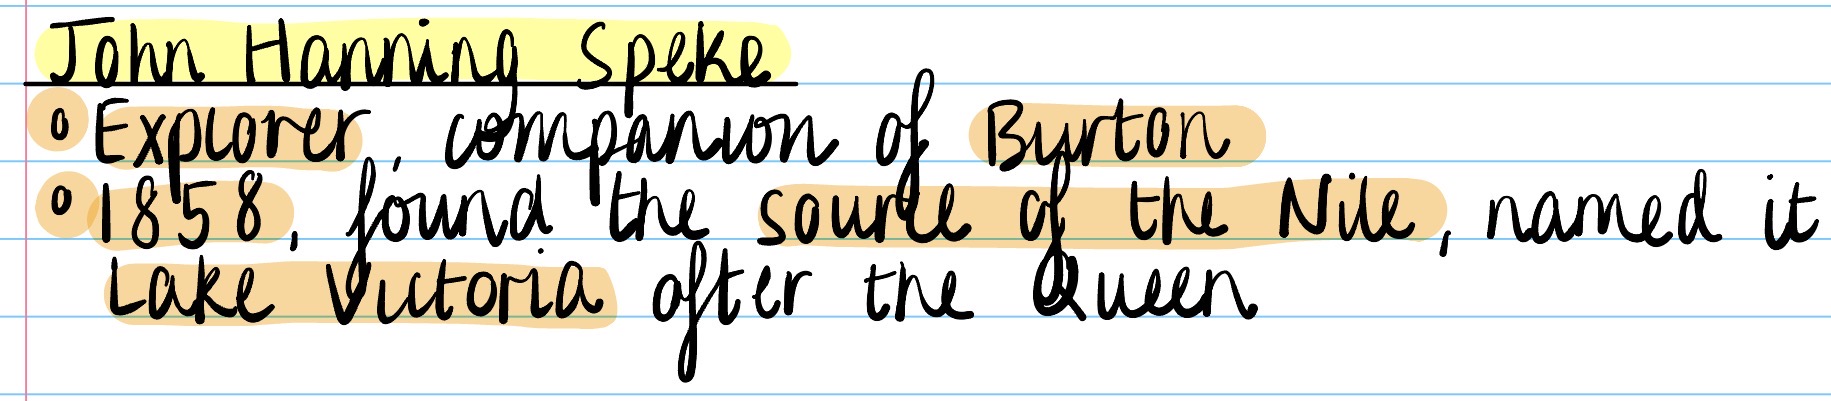 John Hanning Speke
• Explorer, companion of Burton
• 1858, found the source of the Nile, named it
Lake Victoria after the Queen